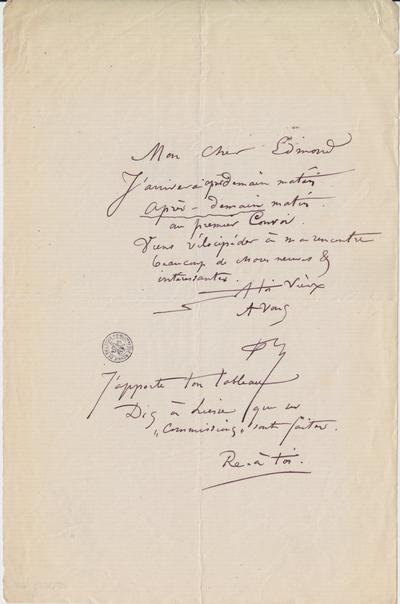 Mon cher Edmond
J'arriverai après demain matin
Après-demain matin.
au premier Convoi.
Viens vélocipéder à ma rencontre
beaucoup de choses neuves &
intéressantes.
A toi Vieux
A vous
J'apporte ton tableau
Dis à que ses
"Commissions" sont faites.
Re-à toi.